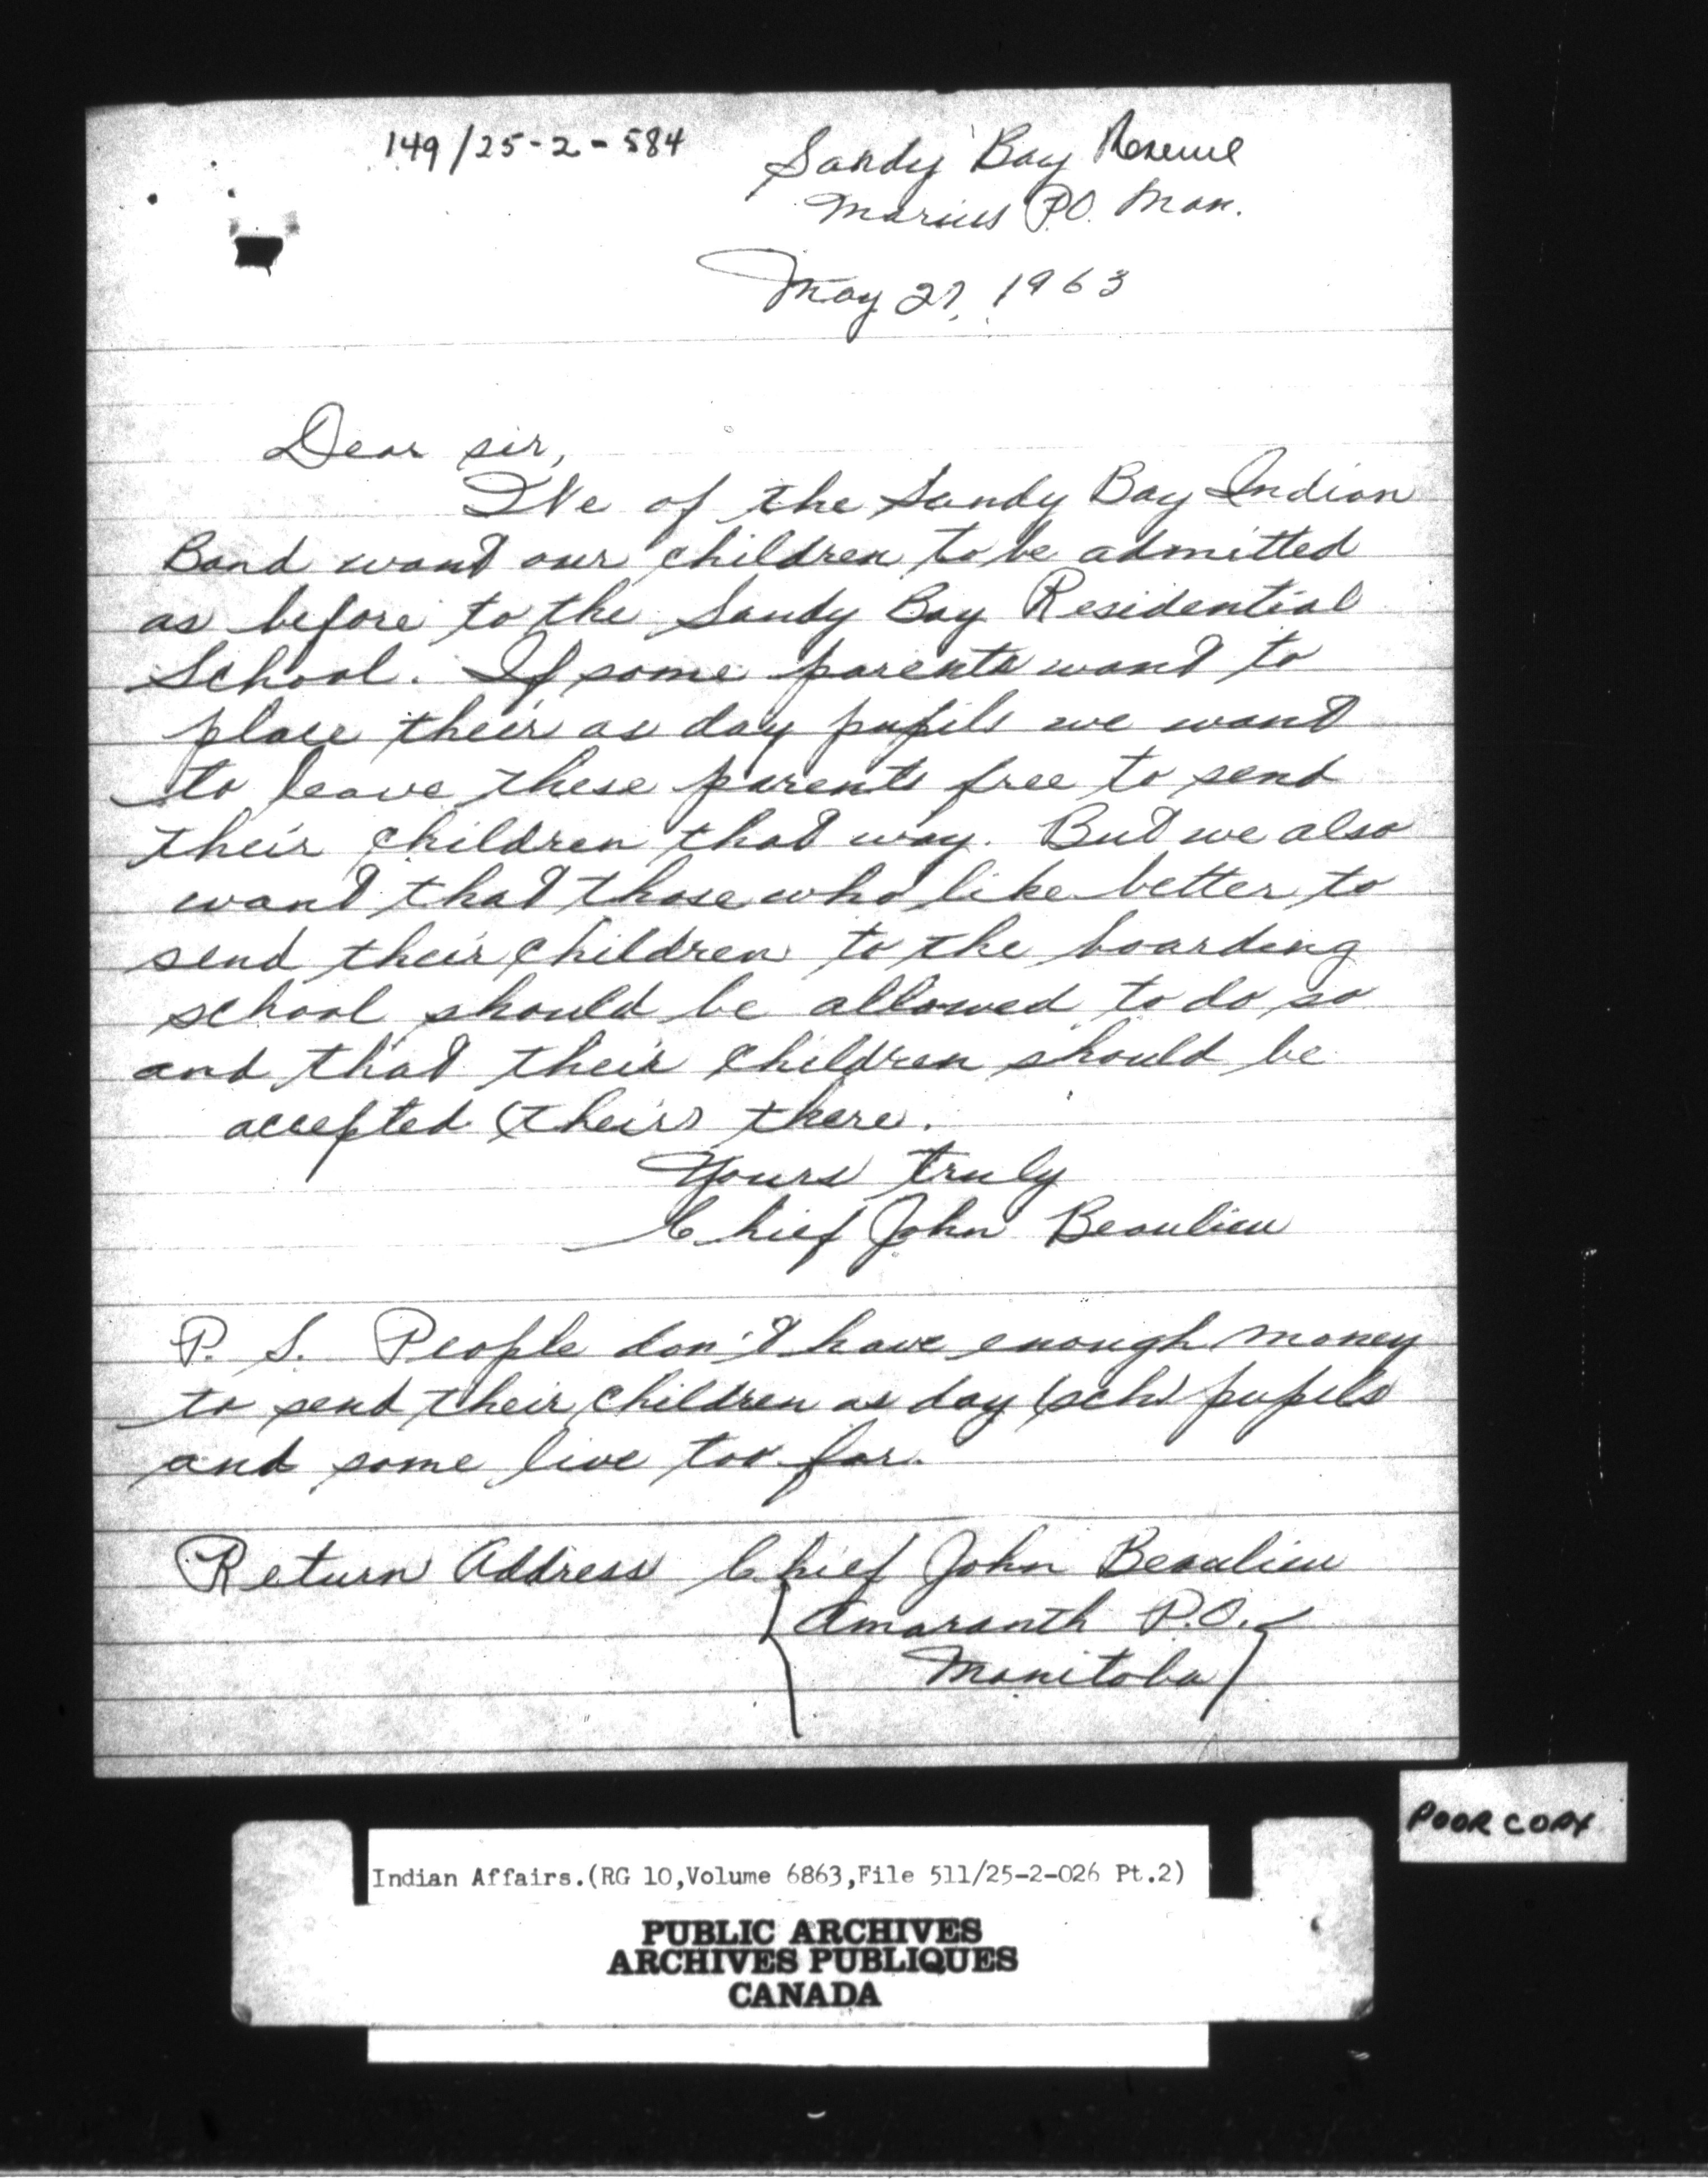 149/25-2-584
Sandy Bay Reserve
Marius P.O. Man.
May 27, 1963
Dear sir,
We of the Sandy Bay Indian
Band want our children to be admitted
as before to the Sandy Bay Residential
School. If some parents want to
place their as day pupils we want
to leave these parents free to send
their children that way. But we also
want that those who like better to
send their children to the boarding
school should be allowed to do so
and that their children should be
accepted (theirs) there.
Yours truly
Chief John Beaulieu
P. S. People don't have enough money
to send their children as day (sch) pupils
and some live too far.
Return Address Chief John Beaulieu
Amaranth P.O.
Manitoba
POOR COPY
Indian Affairs.(RG 10,Volume 6863,File 511/25-2-026 Pt.2)
PUBLIC ARCHIVES
ARCHIVES PUBLIQUES
CANADA